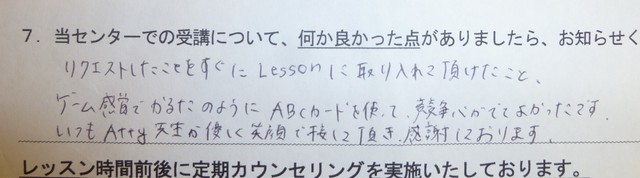 7．当センターでの受講について、何か良かった点がありましたら、お知らせく
リクエストしたことをすぐに Lesson に取り入れて頂けたこと、
ゲーム感覚でかるたのように ABCカードを使って、競争心がでてよかったです.
いつも 先生が優しく笑顔で接して頂き、感謝しております.
レッスン時間前後に定期カウンセリングを実施いたしております。